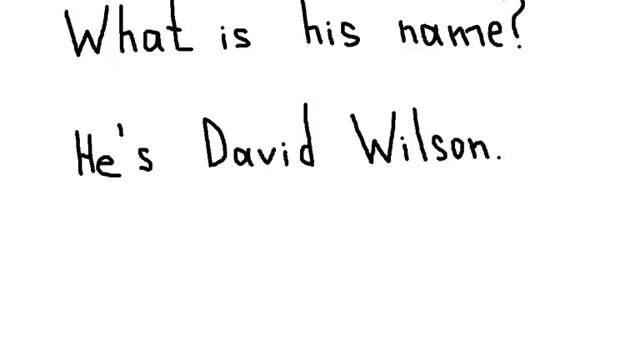 What is his name?
He's David Wilson.